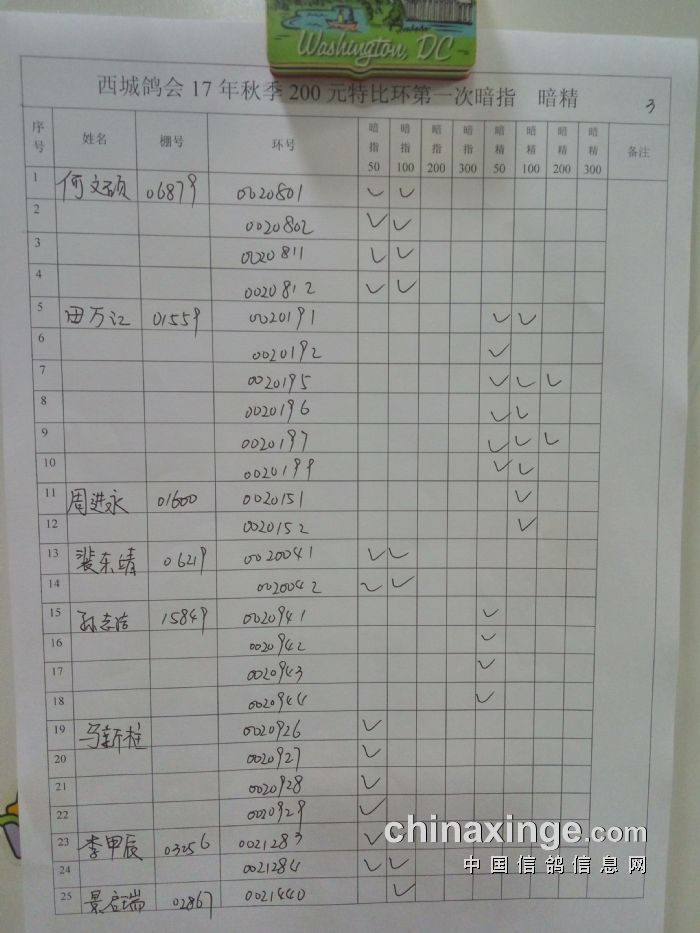 Washington, DC
西城鸽会17年秋季200元特比环第一次暗指 暗精 3
序号 姓名 棚号 环号 暗指50 暗指100 暗指200 暗指300 暗精50 暗精100 暗精200 暗精300 备注
1 何文硕 06879 0020801 ✓ ✓
2 0020802 ✓ ✓
3 0020811 ✓ ✓
4 0020812 ✓ ✓
5 田万江 01559 0020191 ✓ ✓
6 0020192 ✓
7 0020195 ✓ ✓ ✓
8 0020196 ✓ ✓
9 0020197 ✓ ✓ ✓
10 0020199 ✓ ✓
11 周进永 01600 0020151 ✓
12 0020152 ✓
13 裴东靖 06219 0020041 ✓ ✓
14 0020042 ✓ ✓
15 孙志浩 15849 0020941 ✓
16 0020942 ✓
17 0020943 ✓
18 0020944 ✓
19 马新柱 0020926 ✓
20 0020927 ✓
21 0020928 ✓
22 0020929 ✓
23 李甲辰 03256 0021283 ✓
24 0021284 ✓ ✓
25 景启瑞 02867 0021440 ✓
chinaxinge.com
中国信鸽信息网